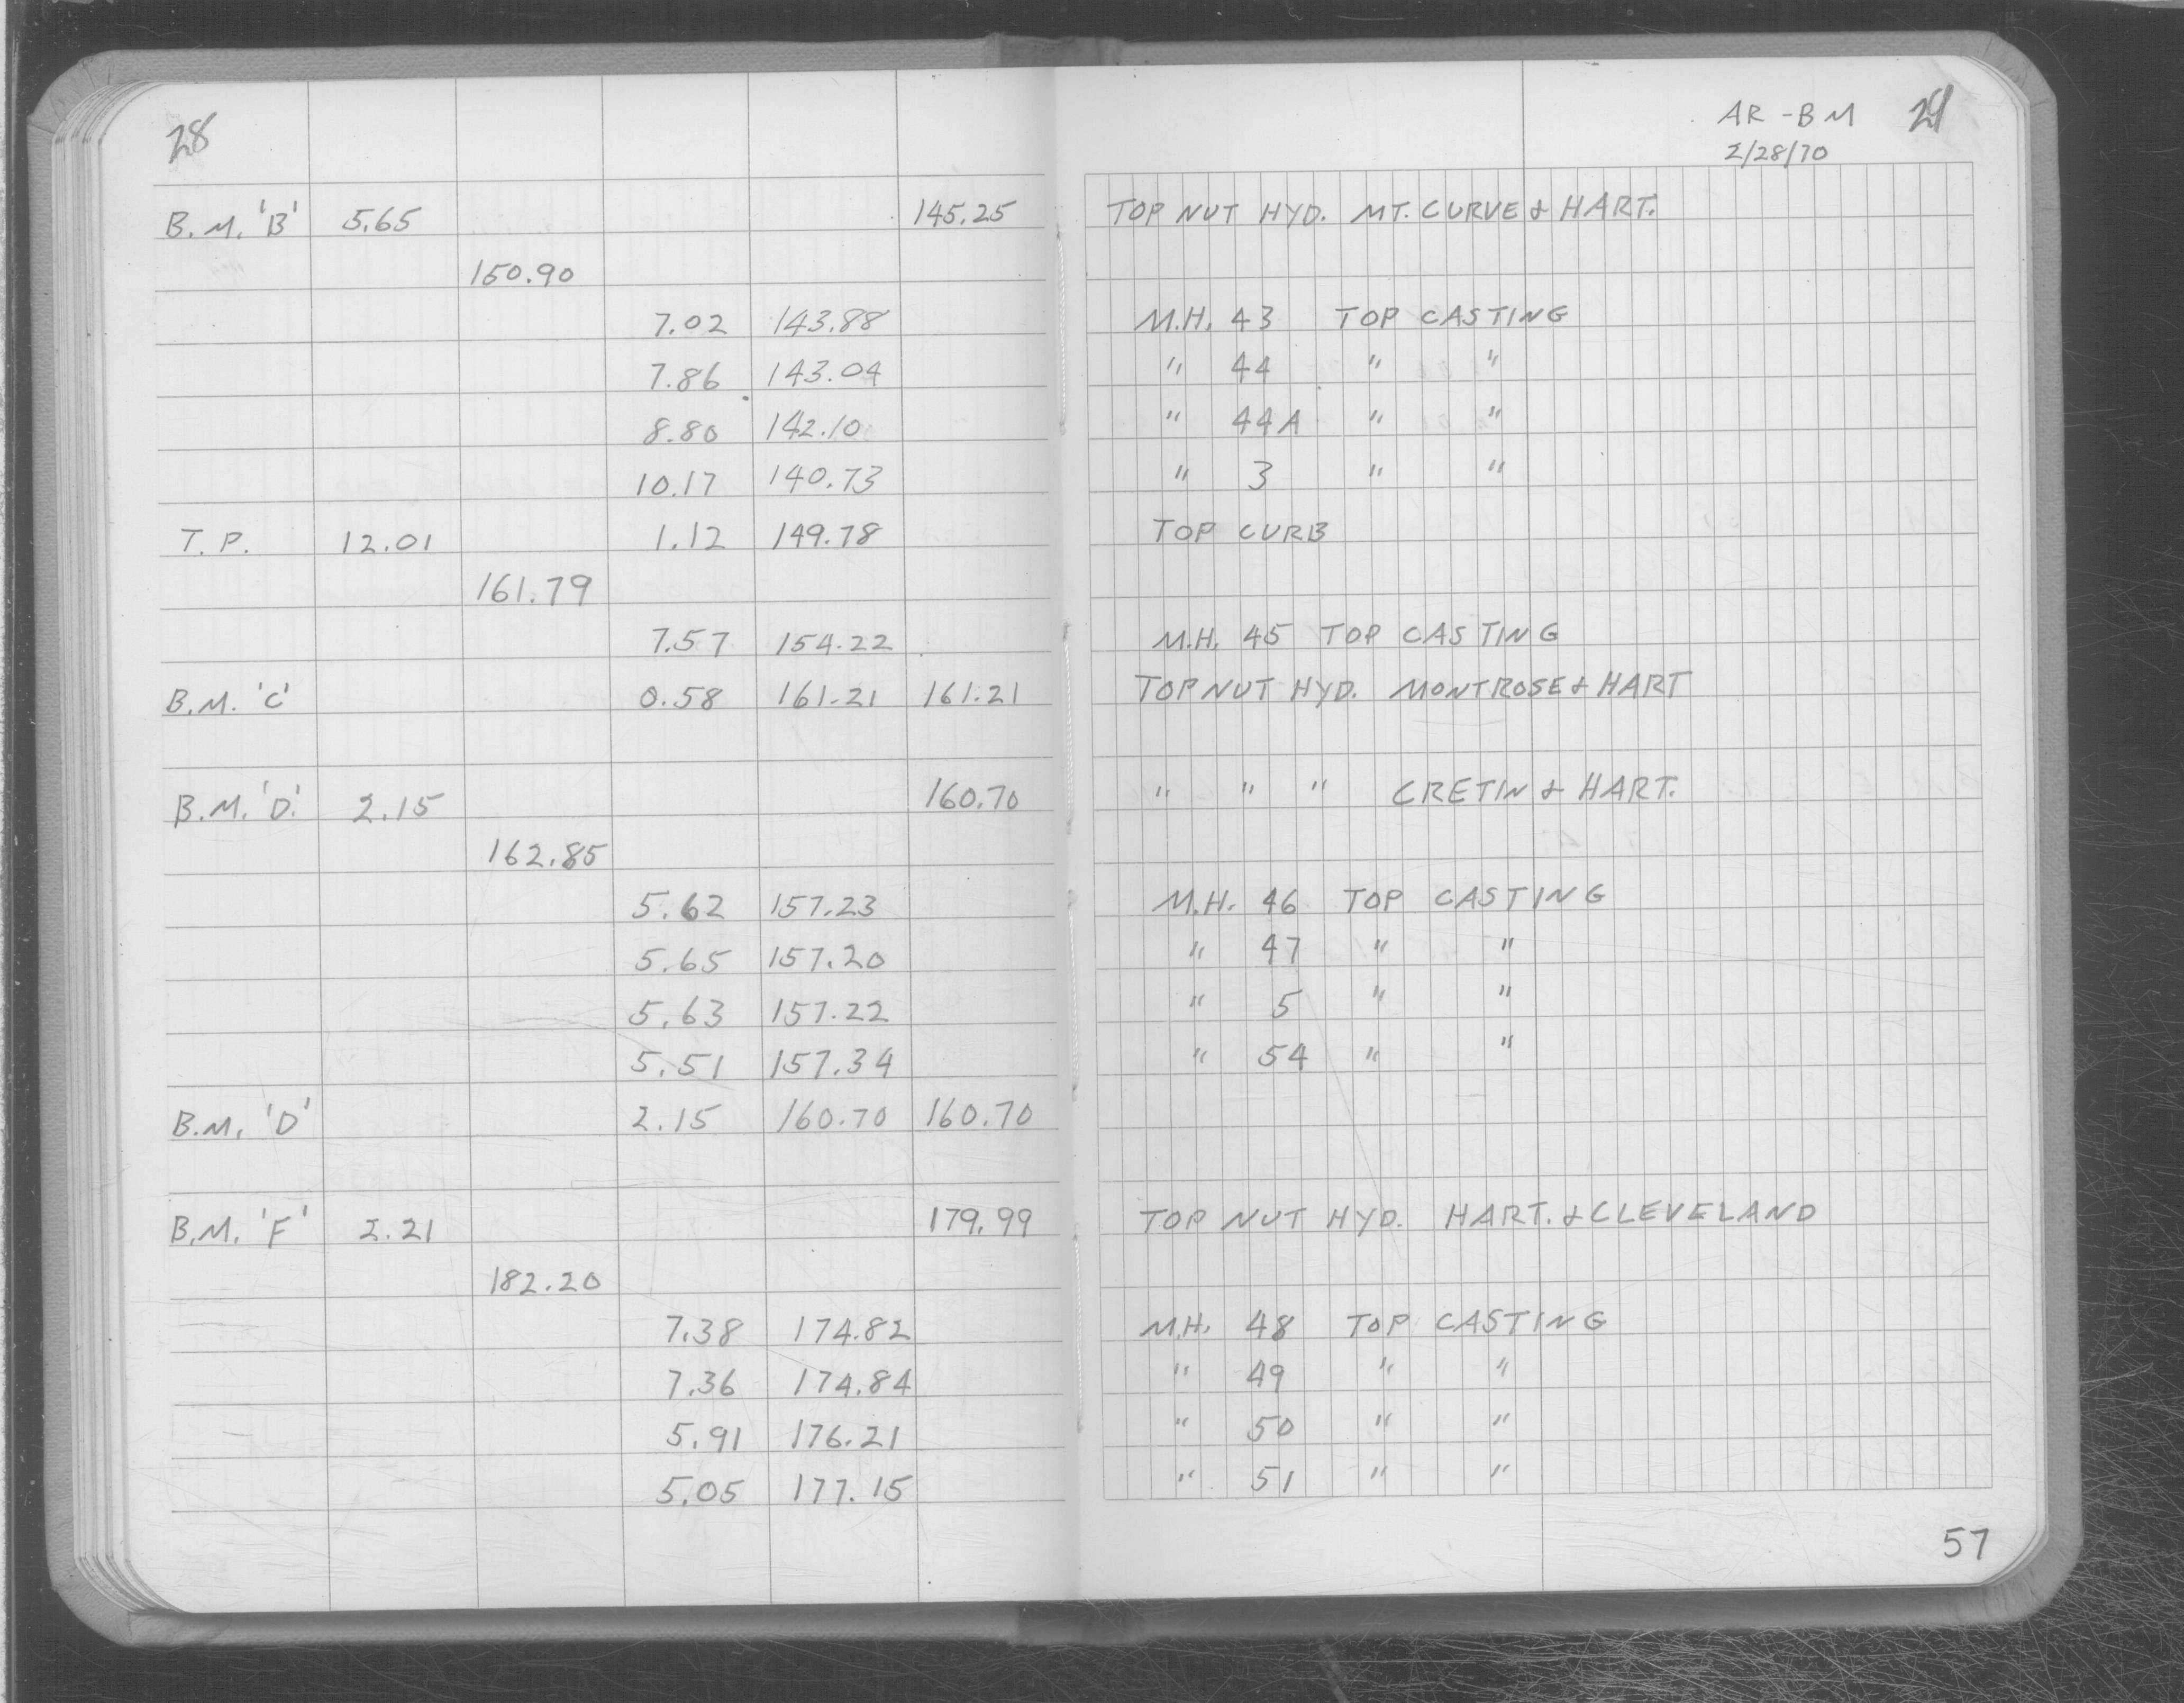 28
B.M. 'B' 5.65 145.25
150.90
7.02 143.88
7.86 143.04
8.80 142.10
10.17 140.73
T.P. 12.01 1.12 149.78
161.79
7.57 154.22
B.M. 'C' 0.58 161.21 161.21
B.M. 'D' 2.15 160.70
162.85
5.62 157.23
5.65 157.20
5.63 157.22
5.51 157.34
B.M. 'D' 2.15 160.70 160.70
B.M. 'F' 2.21 179.99
182.20
7.38 174.82
7.36 174.84
5.91 176.21
5.05 177.15
AR - BM 29
2/28/70
TOP NUT HYD. MT. CURVE & HART.
M.H. 43 TOP CASTING
" 44 " "
" 44A " "
" 3 " "
TOP CURB
M.H. 45 TOP CASTING
TOP NUT HYD. MONTROSE & HART
" " " CRETIN & HART.
M.H. 46 TOP CASTING
" 47 " "
" 5 " "
" 54 " "
TOP NUT HYD. HART. & CLEVELAND
M.H. 48 TOP CASTING
" 49 " "
" 50 " "
" 51 " "
57